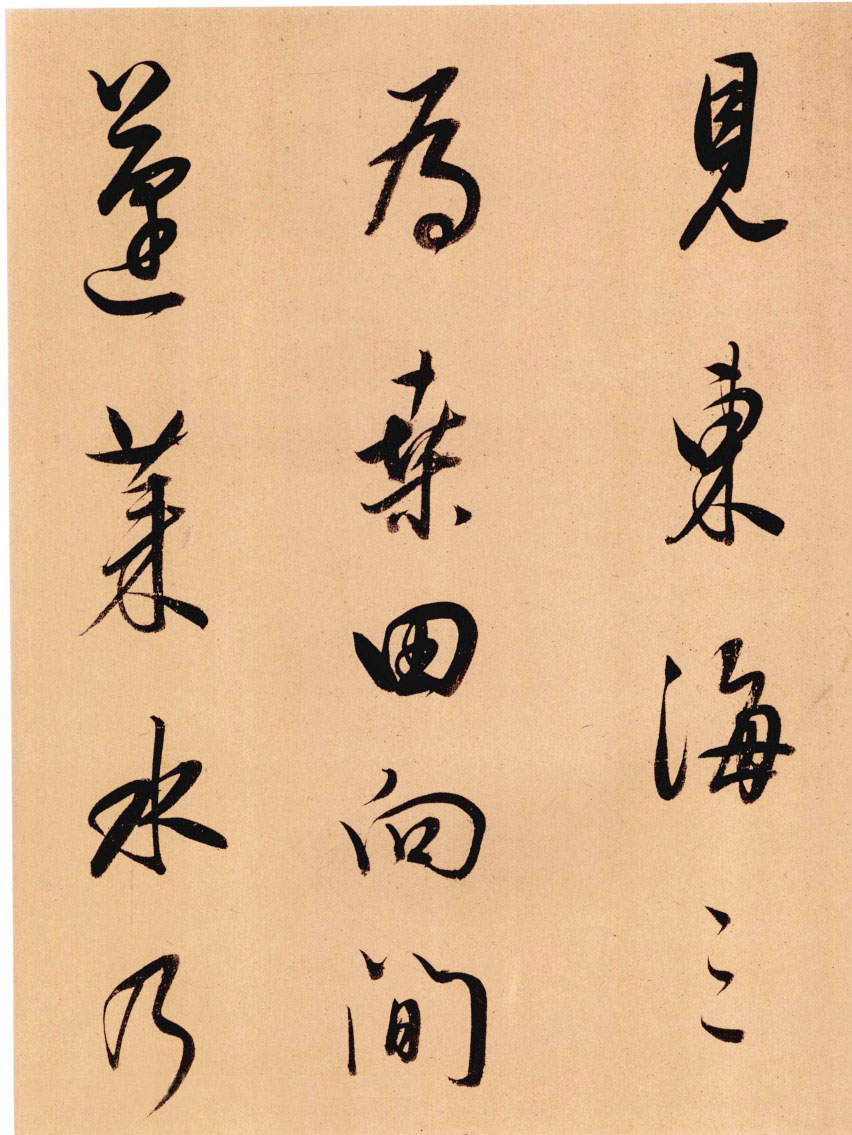 見東海三
為桑田向間
蓬萊水乃